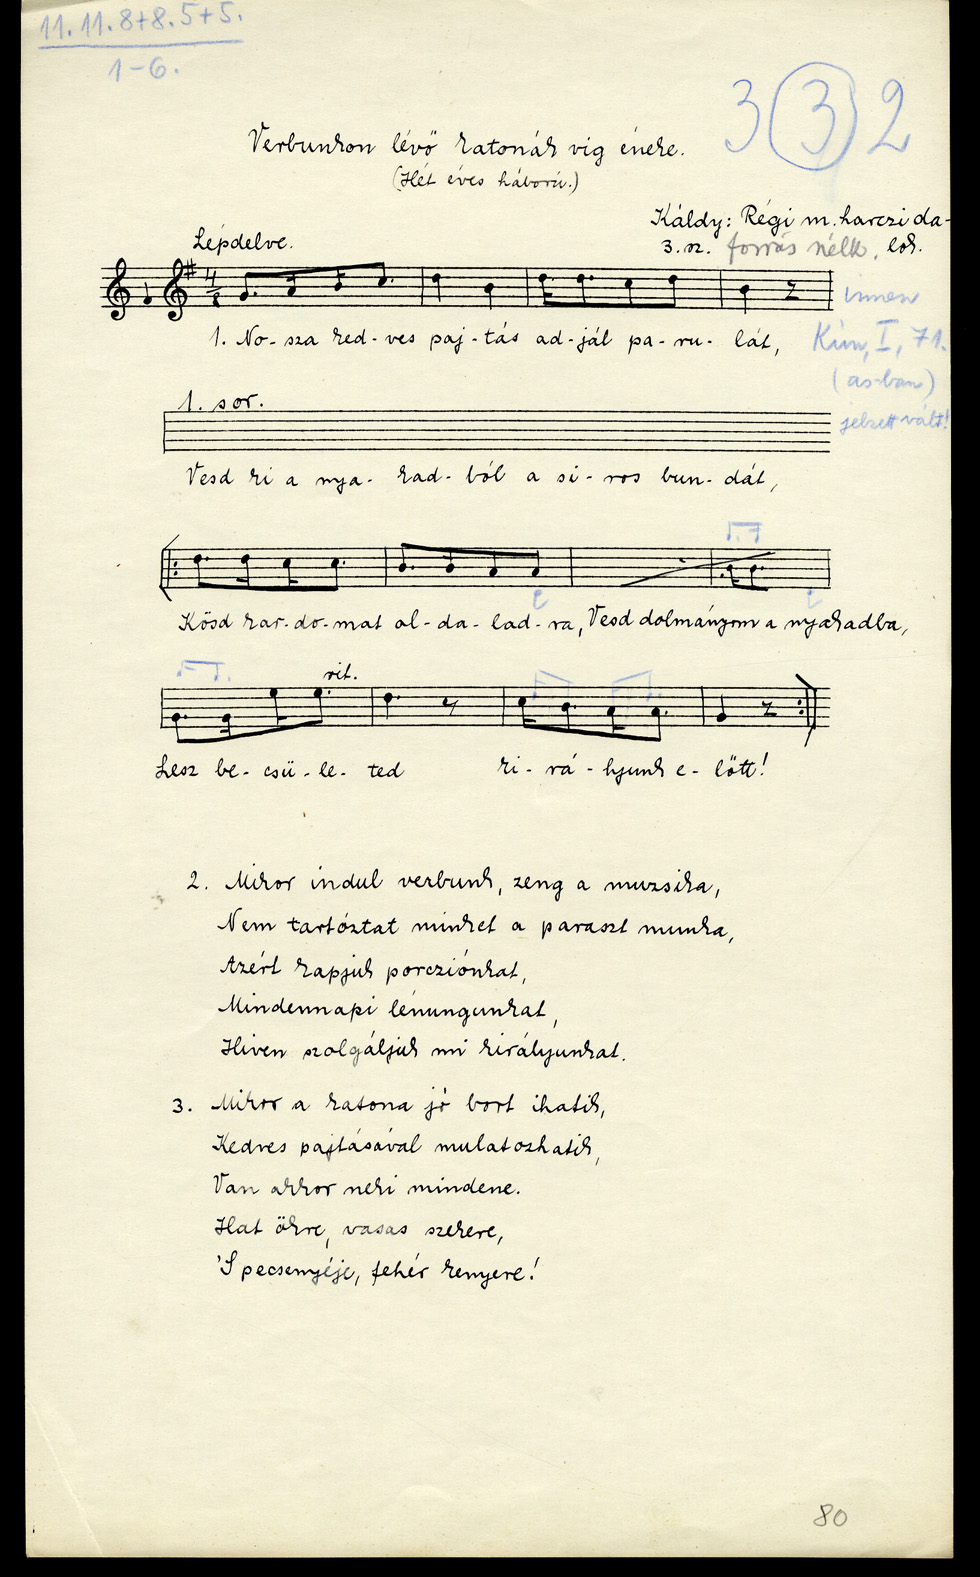 11. 11. 8+8. 5+5.
1-6.
3 3 2
Verbunkon lévő katonák víg éneke.
(Hét éves háború.)
Káldy: Régi m. harczi da-
3. sz. forrás nélk. lok.
Lépdelve.
innen
1. No- sza ked- ves paj- tás ad- jál pa- ru- lát,
Kún, I, 71.
(as-ban)
jelzett vált!
1. sor.
Vesd ki a nya- kad- ból a si- ros bun- dát,
Kösd kar- do- mat ol- da- lad- ra, Vesd dolmányom a nyakadba,
rit.
Lesz be- csü- le- ted ki- rá- lyunk e- lőtt!
2. Mikor indul verbunk, zeng a muzsika,
Nem tartóztat minket a paraszt munka,
Azért kapjuk porcziónkat,
Mindennapi lénungunkat,
Hiven szolgáljuk mi királyunkat.
3. Mikor a katona jó bort ihatik,
Kedves pajtásával mulatozhatik,
Van akkor neki mindene.
Hat ökre, vasas szekere,
'S pecsenyéje, fehér kenyere!
80